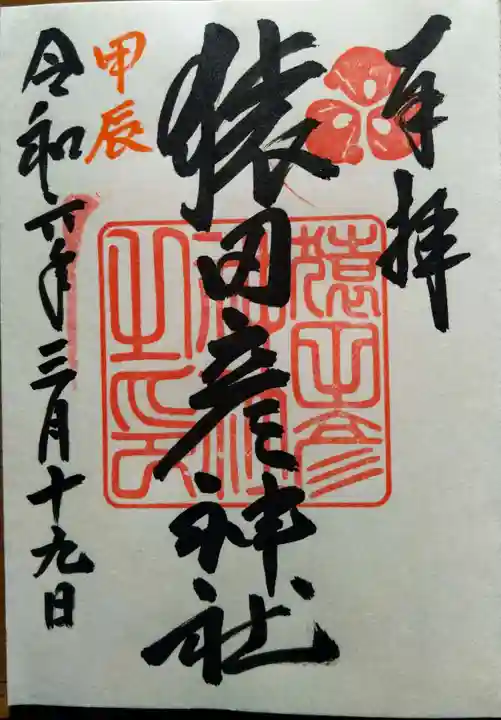 奉拝
猿田彦神社
猿田彦
神社
之印
甲辰
令和六年三月十九日